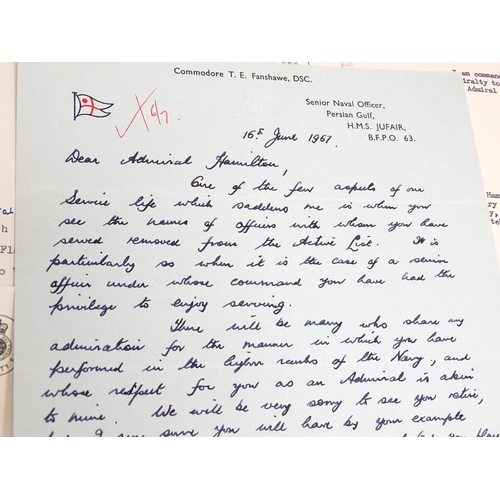 Commodore T. E. Fanshawe, DSC.
Senior Naval Officer,
Persian Gulf,
H.M.S. JUFAIR,
B.F.P.O. 63.
6/7
16th June 1967.
Dear Admiral Hamilton,
One of the few aspects of our
Service life which saddens me is when you
see the names of officers with whom you have
served removed from the Active List. It is
particularly so when it is the case of a senior
officer under whose command you have had the
privilege to enjoy serving.
There will be many who share my
admiration for the manner in which you have
performed in the higher ranks of the Navy, and
whose respect for you as an Admiral is akin
to mine. We will be very sorry to see you retire,
sure you will have by your example
am command
miralty to
Admiral